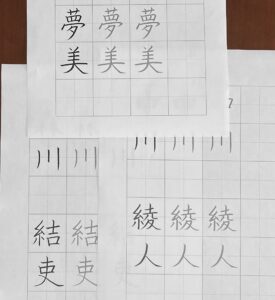 夢夢夢
美美美
川川
結結
吏吏
川川川
綾綾綾
人人人